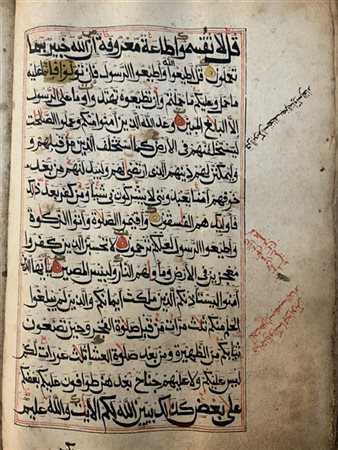 قل لا تقسموا طاعة معروفة ان الله خبير بما
تعملون قل اطيعوا الله واطيعوا الرسول فان تولوا فانما عليه
ما حمل وعليكم ما حملتم وان تطيعوه تهتدوا وما على الرسول
الا البلاغ المبين وعد الله الذين امنوا منكم وعملوا الصالحات
ليستخلفنهم في الارض كما استخلف الذين من قبلهم
وليمكنن لهم دينهم الذي ارتضى لهم وليبدلنهم من بعد
خوفهم امنا يعبدونني لا يشركون بي شيئا ومن كفر بعد ذلك
فاولئك هم الفاسقون واقيموا الصلاة واتوا الزكوة
واطيعوا الرسول لعلكم ترحمون لا تحسبن الذين كفروا
معجزين في الارض وماواهم النار ولبيس المصير يا ايها الذين
امنوا ليستاذنكم الذين ملكت ايمانكم والذين لم يبلغوا
الحلم منكم ثلث مرات من قبل صلوة الفجر وحين تضعون
ثيابكم من الظهيرة ومن بعد صلوة العشاء ثلث عورات لكم
ليس عليكم ولا عليهم جناح بعدهن طوافون عليكم بعضكم
على بعض كذلك يبين الله لكم الايت والله عليم